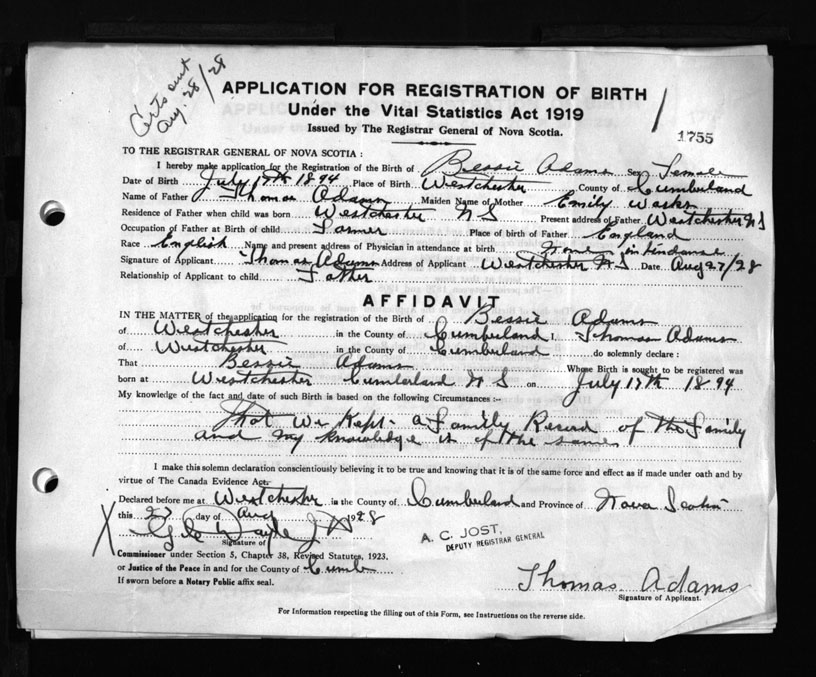 Certs sent
Aug. 28/28
APPLICATION FOR REGISTRATION OF BIRTH
Under the Vital Statistics Act 1919
Issued by The Registrar General of Nova Scotia.
1755
TO THE REGISTRAR GENERAL OF NOVA SCOTIA :
I hereby make application for the Registration of the Birth of Bessie Adams Sex Female
Date of Birth July 17th 1894 Place of Birth Westchester County of Cumberland
Name of Father Thomas Adams Maiden Name of Mother Emily
Residence of Father when child was born Westchester N S Present address of Father Westchester N S
Occupation of Father at Birth of child Farmer Place of birth of Father England
Race English Name and present address of Physician in attendance at birth None in
Signature of Applicant Thomas Adams Address of Applicant Westchester N S Date Aug 27/28
Relationship of Applicant to child Father
AFFIDAVIT
IN THE MATTER of the application for the registration of the Birth of Bessie Adams
of Westchester in the County of Cumberland I, Thomas Adams
of Westchester in the County of Cumberland do solemnly declare :
That Bessie Adams Whose Birth is sought to be registered was
born at Westchester Cumberland N S on July 17th 1894
My knowledge of the fact and date of such Birth is based on the following Circumstances :-
That We Kept a Family Record of The Family
and my knowledge is of the same
I make this solemn declaration conscientiously believing it to be true and knowing that it is of the same force and effect as if made under oath and by
virtue of The Canada Evidence Act.
Declared before me at Westchester in the County of Cumberland and Province of Nova Scotia
this 27 day of Aug 1928
Signature of
A. C. JOST,
DEPUTY REGISTRAR GENERAL
Commissioner under Section 5, Chapter 38, Revised Statutes, 1923.
or Justice of the Peace in and for the County of Cumb
If sworn before a Notary Public affix seal.
Thomas Adams
Signature of Applicant.
For Information respecting the filling out of this Form, see Instructions on the reverse side.